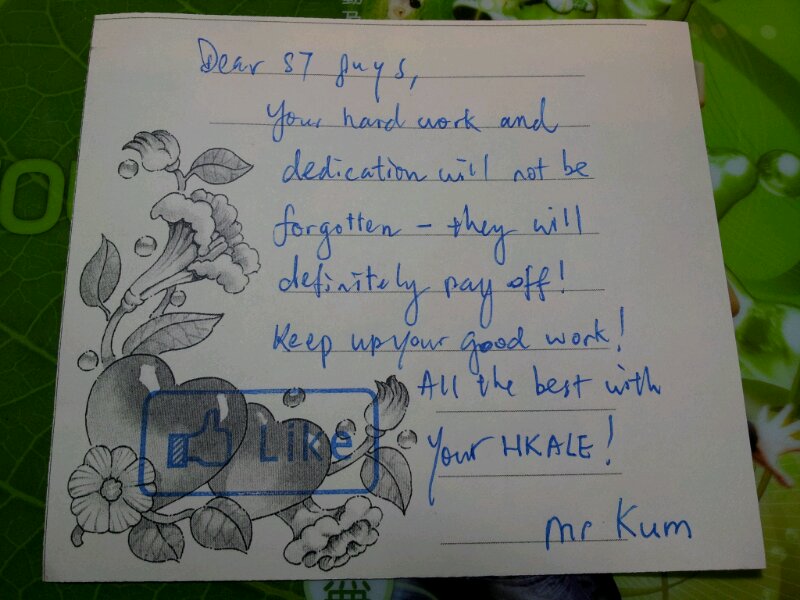 Dear S7 guys,
Your hard work and
dedication will not be
forgotten – they will
definitely pay off!
Keep up your good work!
All the best with
Your HKALE!
Like
Mr Kum